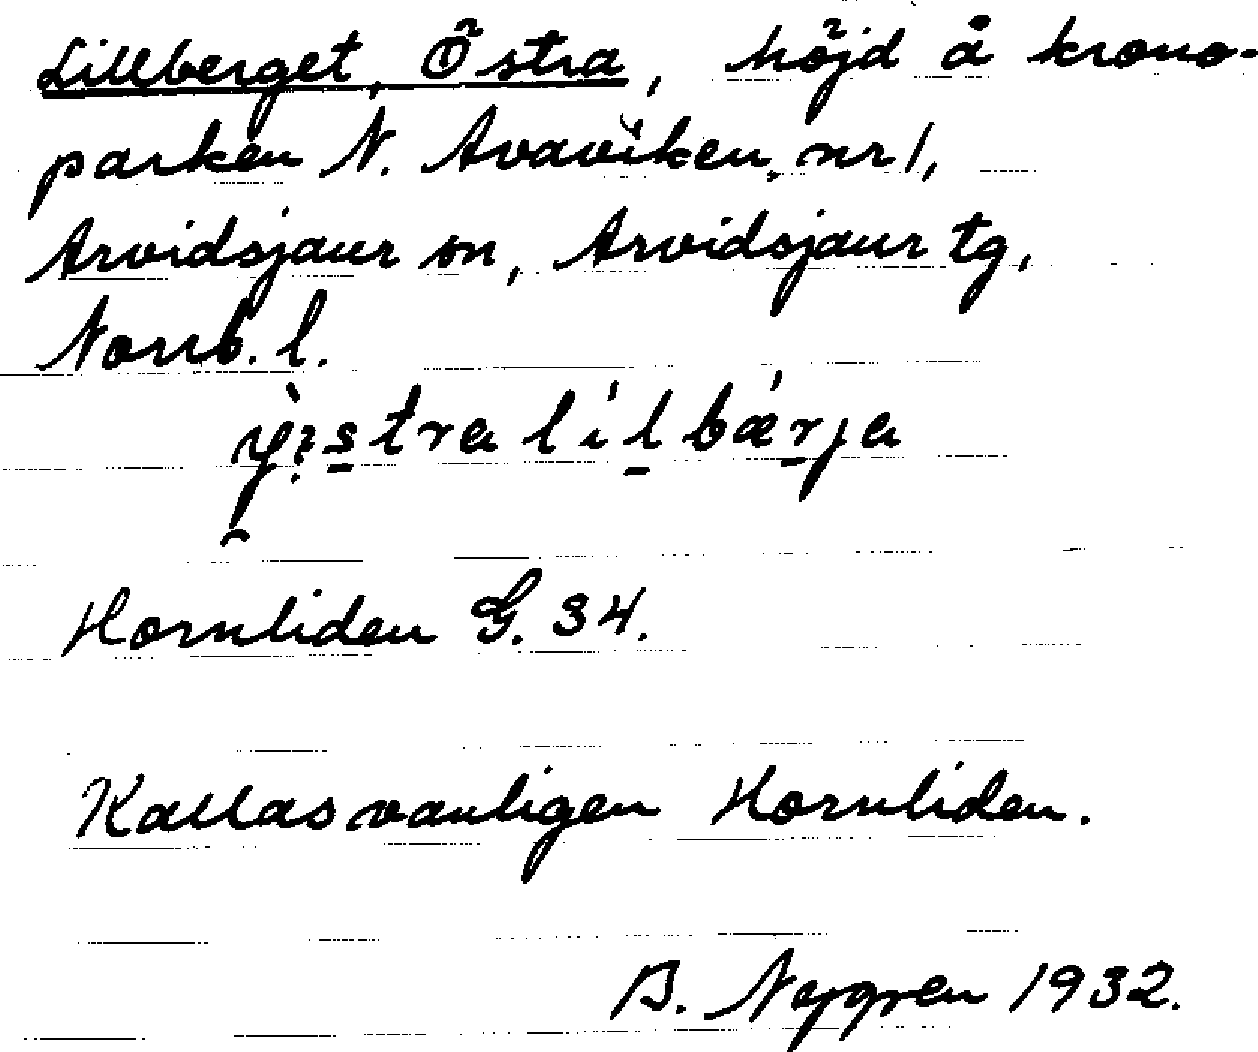 Lillberget, Östra, höjd å krono-
parken N. Avaviken, nr 1,
Arvidsjaur sn, Arvidsjaur tg,
Norrb. l.
lílbǽrja
Hornliden G. 34.
Kallas vanligen Hornliden.
B. Nygren 1932.